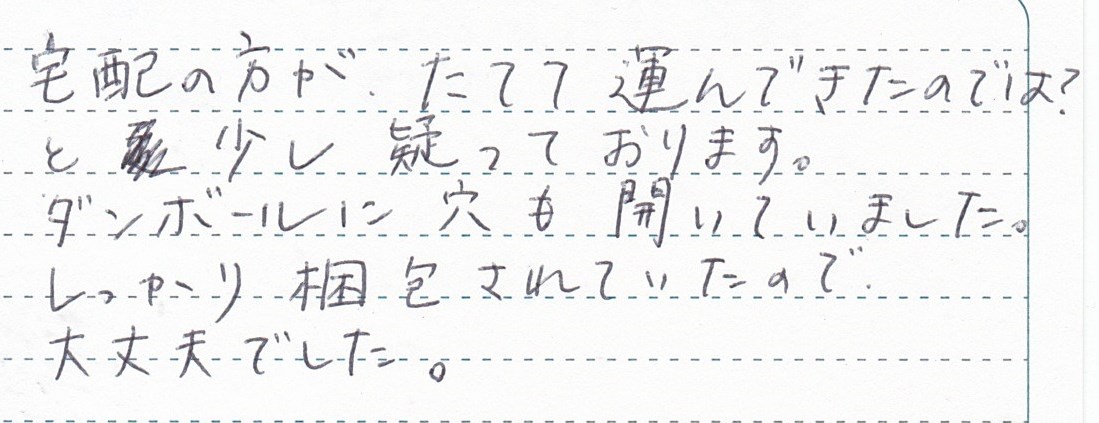 宅配の方が、たてて運んできたのでは?
と 少し疑っております。
ダンボールに穴も開いていました。
しっかり梱包されていたので、
大丈夫でした。